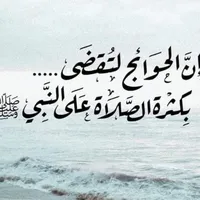 إِنَّ الحَوَائِج لَتُقضَى .....
بِكثْرة الصَّلَاة عَلَى النَّبِي ﷺ